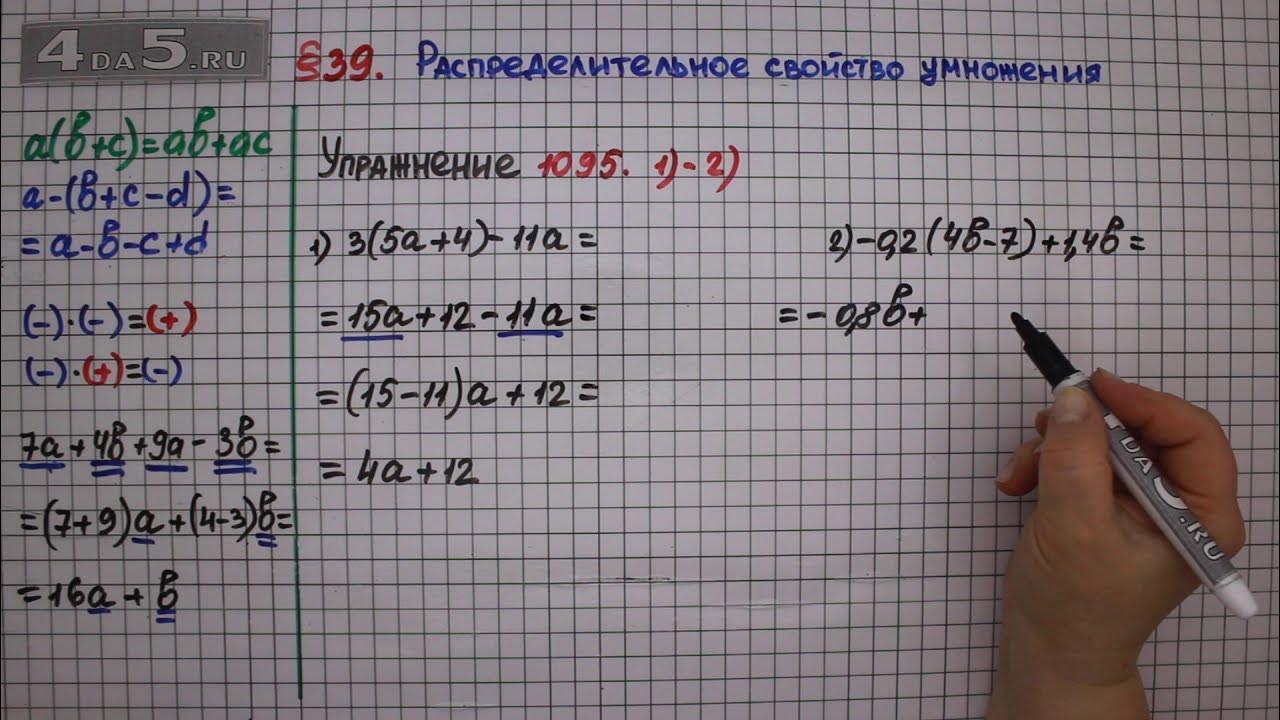 4DA5.RU
§39. Распределительное свойство умножения
a(b+c)=ab+ac
a-(b+c-d)=
=a-b-c+d
(-)·(-)=(+)
(-)·(+)=(-)
7a+4b+9a-3b=
=(7+9)a+(4-3)b=
=16a+b
Упражнение 1095. 1)-2)
1) 3(5a+4)-11a=
=15a+12-11a=
=(15-11)a+12=
=4a+12
2)-0,2(4b-7)+1,4b=
=-0,8b+
4DA5.RU